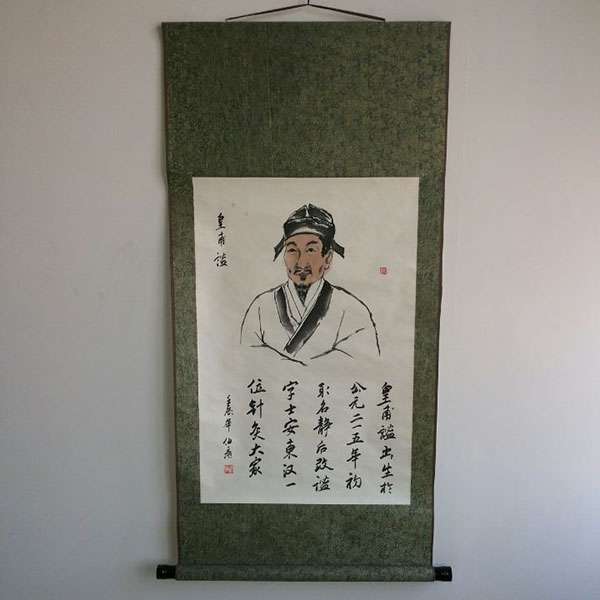 皇甫谧
皇甫谧出生於
公元二一五年初
取名静后改谧
字士安東汉一
位针灸大家
壬辰年 伯